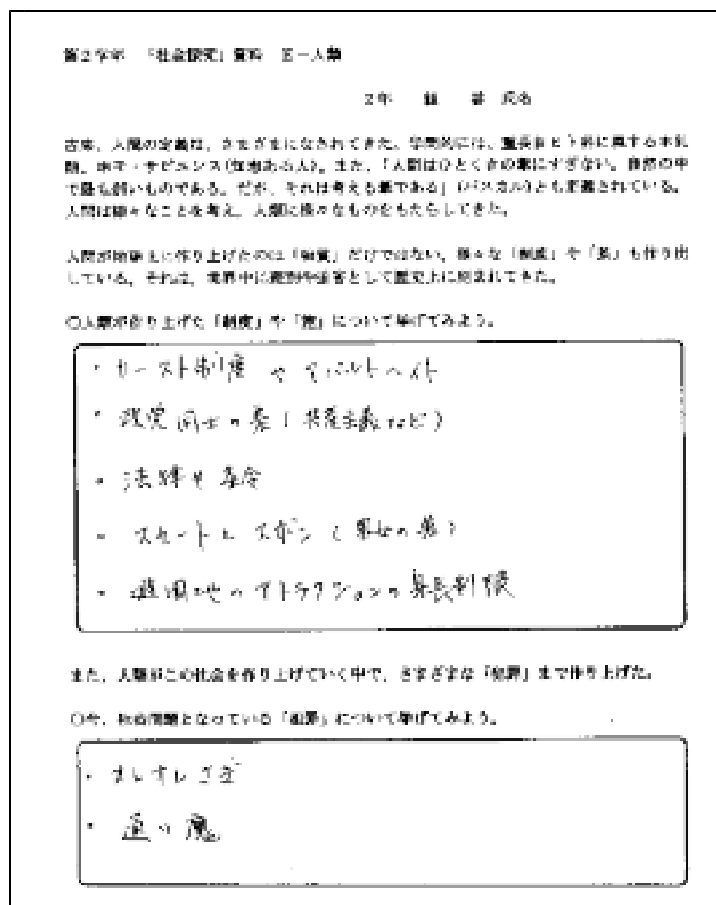 第2学年 「社会探究」資料 Ⅱ－人類
2年 組 番 氏名
古来、人間の定義は、さまざまになされてきた。学問的には、霊長目ヒト科に属する
類、ホモ・サピエンス(知恵ある人)。また、「人間はひとくきの葦にすぎない。自然の中
で最も弱いものである。だが、それは考える葦である」(パスカル)とも定義されている。
人間は様々なことを考え、人類に様々なものをもたらしてきた。
人間が地球上に作り上げたのは「物質」だけではない、様々な「制度」や「差」も作り出
している。それは、世界中に差別や迫害として歴史上に刻まれてきた。
○人類が作り上げた「制度」や「差」について挙げてみよう。
・カースト制度やアパルトヘイト
・政党同士の差(共産主義など)
・法律や条令
・スカートとズボン(男女の差)
・遊園地のアトラクションの身長制限
また、人類がこの社会を作り上げていく中で、さまざまな「犯罪」まで作り上げた。
○今、社会問題となっている「犯罪」について挙げてみよう。
・オレオレさぎ
・通り魔